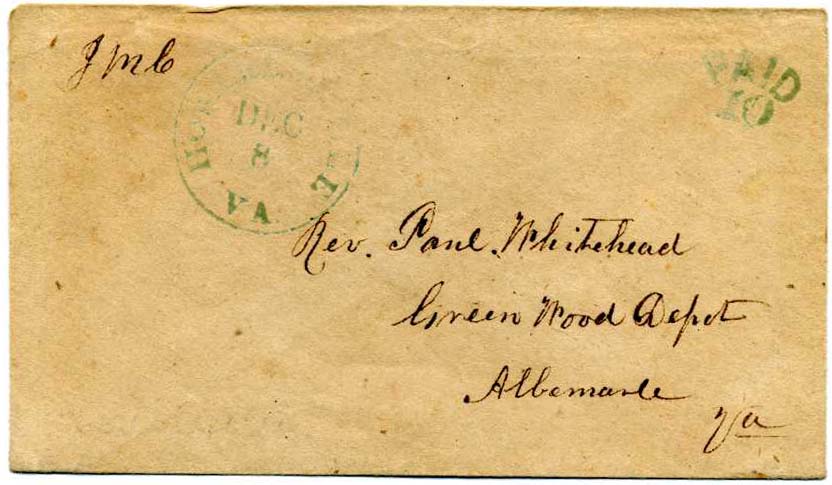 J M C
DEC
8
VA
PAID
10
Rev. Paul. Whitehead
Green Wood Depot
Albemarle
Va